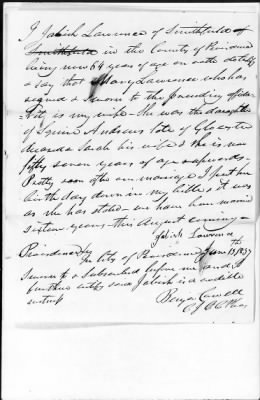 I Jabish Lawrence of Smithfield
Smithfield in the County of Providence
being now 64 years of age on oath
& say that Mary Lawrence who has
signed & sworn to the preceding affida-
vit is my wife - She was the daughter
of Squire Andrews late of Glocester
and Sarah his wife & She is now
fifty seven years of age & upwards -
Pretty soon after our marriage I put her
birth day down in my bible & it was
as she has stated - we have been married
sixteen years this August coming -
Jabish Lawrence
Providence
In City of Providence June 13th 1837
sworn to & subscribed before me and I
further certify said Jabish is a credible
witness
Benja Cowell